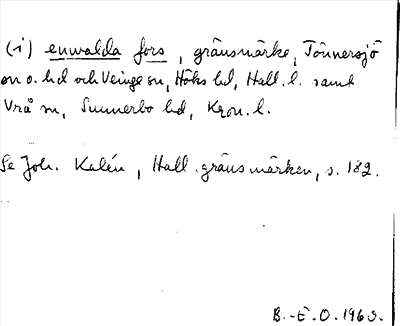 (i) enwalda fors, gränsmärke, Tönnersjö
sn o. hd och Veinge sn, Höks hd, Hall. l. samt
Vrå sn, Sunnerbo hd, Kron. l.
Se Joh. Kalén, Hall. gränsmärken, s. 182.
B.-E. O. 1963.